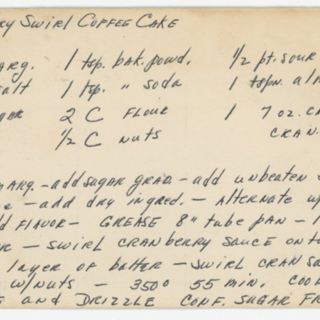 RY SWIRL COFFEE CAKE
ARG. 1 tsp. bak. powd. 1/2 pt. sour
alt 1 tsp. " soda 1 tspn. al
gar 2 C FLOUR 1 7 oz. C
1/2 C NUTS CRAN.
MARG. - add SUGAR GRAD - add UNBEATEN
- add dry ingred. - ALTERNATE W
d FLAVOR - GREASE 8" tube PAN - 1
R - SWIRL CRANBERRY SAUCE ONTO
LAYER OF batter - SWIRL CRAN SA
W/NUTS - 350° 55 MIN. COOL
AND DRIZZLE CONF. SUGAR FR